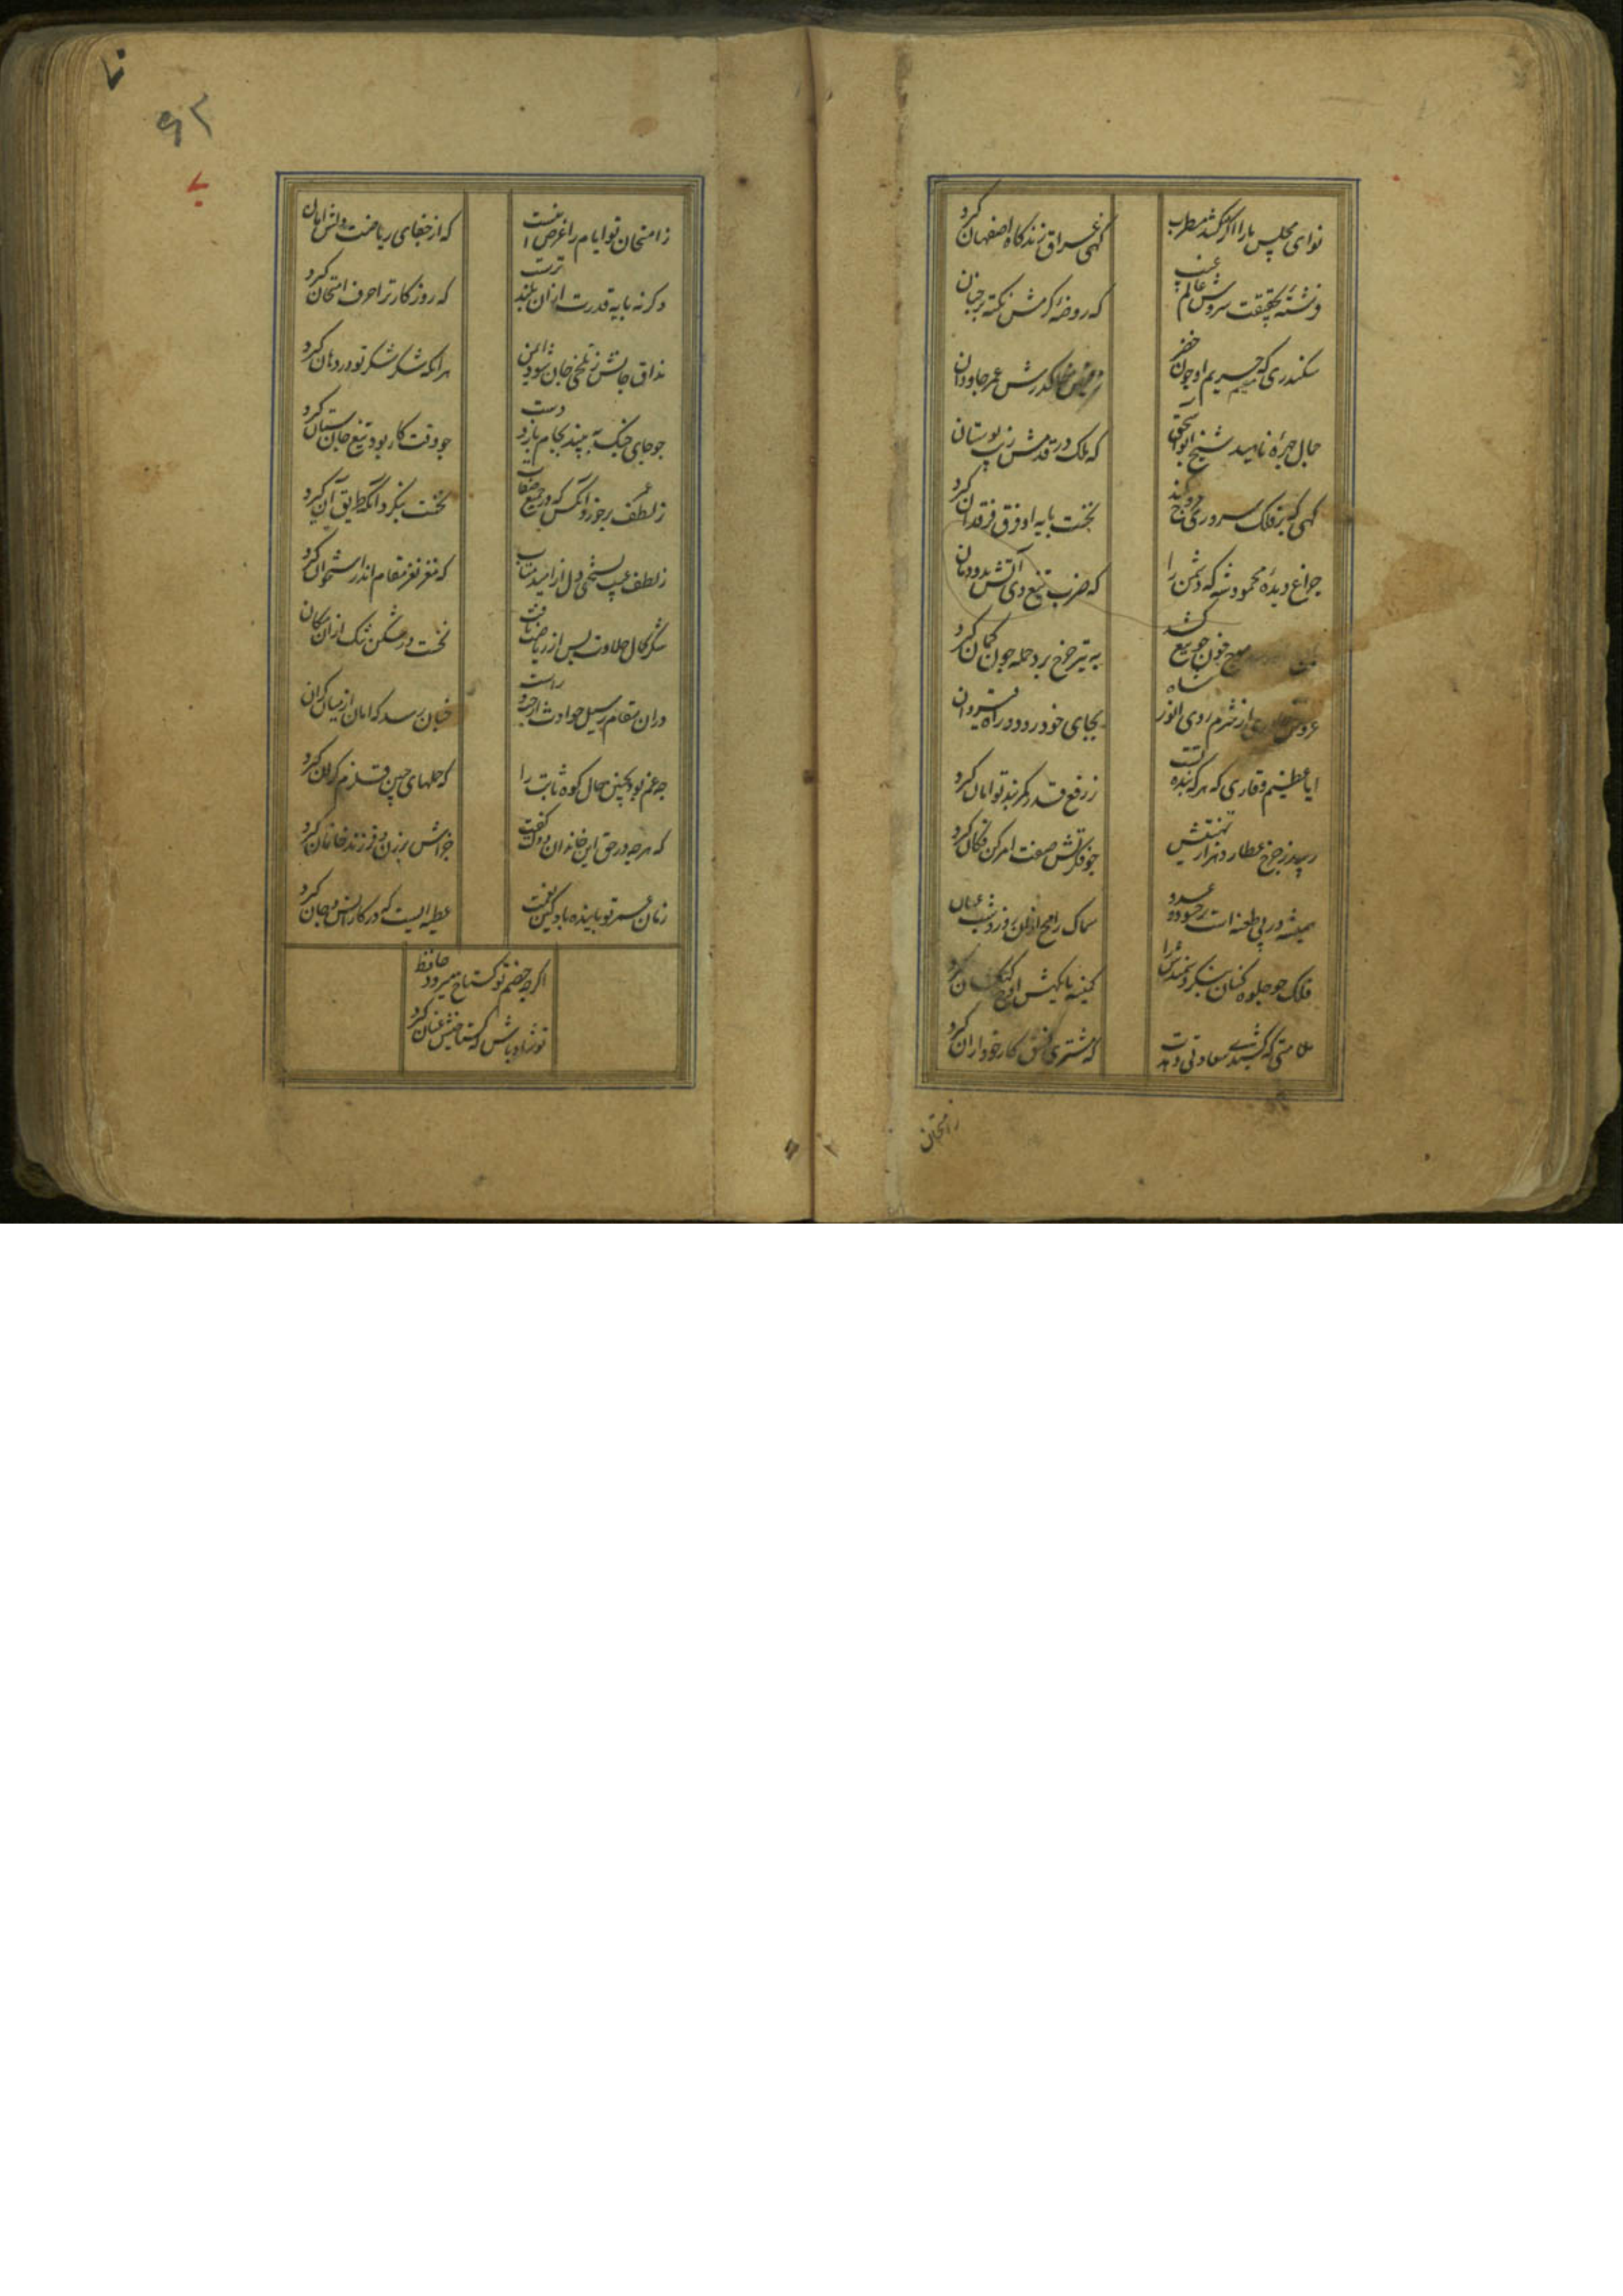 نوای مجلس ما را اگر کشد مطرب
کهی عراق زند کاه اصفهان کیرد
فرشتهٔ بحقیقت سروش عالم غیب
که روضهٔ کرمش نکته بر جنان
سکندری که مقیم حریم او چون خضر
ز فیض خاک درش عمر جاودان
جمال چهرهٔ ... شیخ ابو اسحق
که ملک در قدمش زیب بوستان
کهی که بر فلک سروری عروج کند
نخست پایه او فرق فرقدان کیرد
چراغ دیدهٔ محمود شه که دشمن را
که ضرب تیغ وی آتش بدودمان
موج خون چو تیغ کشد
به تیر چرخ برد حمله چون کمان کیرد
عروس خاوری از شرم روی انور شاه
بجای خود رود و راه قیروان
ایا عظیم وقاری که هر که بنده تست
ز رفع قدر کمربند توامان کیرد
رسد ز چرخ عطارد هزار تهنیتش
چو فکرتش صفت امر کن فکان کیرد
همیشه در پی طعنه است بر حسود و عدو
سماک رامح ازان روز و شب عنان
فلک چو جلوه کنان بنکرد سمند ترا
کمینه پایکهش اوج کهکشان کیرد
ملامتی که کشیدی سعادتی دهدت
که مشتری نسق کار خود از ان کیرد
ز امتحان
ز امتحان تو ایام را غرض انست
که از جفای ریاضت دلش امان
و کر نه پایه قدرت از ان بلند ترست
که روزکار ترا حرف امتحان کیرد
مذاق جانش ز تلخی جان شود ایمن
هر انکه شکر شکر تو در دهان کیرد
چو جای جنک نه بیند بجام یازد دست
چو وقت کار بود تیغ جان ستان کیرد
ز لطف برخورد آنکس که در جمیع صفات
نخست بنکرد آنکه طریق آن کیرد
ز لطف غیب بسختی دل از امید متاب
که مغز نغز مقام اندر استخوان کیرد
شکر کمال حلاوت پس از ریاضت یافت
نخست در شکن تنک از ان مکان
در ان مقام که سیل حوادث از چپ و راست
چنان رسد که امان از میان کران
چه غم بود بچنین حال کوه ثابت را
که حملهای چنین قلزم کران کیرد
که هر چه در حق این خاندان دولت کفت
جزاش بر زن و فرزند و خانمان کیرد
زمان عمر تو پاینده باد کین نعمت
عطیه ایست که در کار انس و جان کیرد
اکر چه خصم تو کستاخ میرود حافظ
تو شاد باش که کستاخیش عنان کیرد